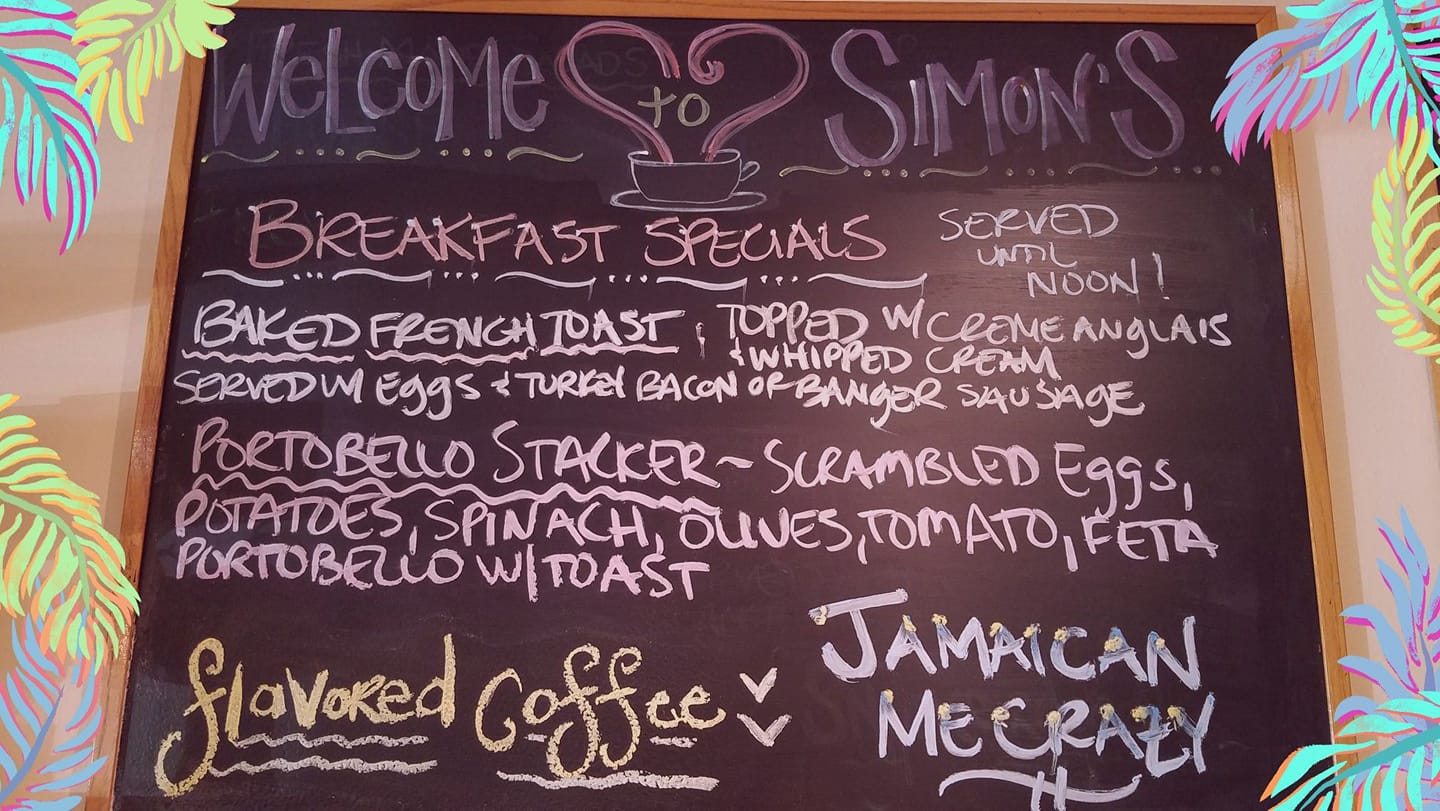 WELCOME TO SIMON'S
BREAKFAST SPECIALS
SERVED
UNTIL
NOON!
BAKED FRENCH TOAST : TOPPED W/ CREME ANGLAIS
& WHIPPED CREAM
SERVED W/ EggS & TURKEY BACON OR BANGER SAUSAGE
PORTOBELLO STACKER ~ SCRAMBLED EggS,
POTATOES, SPINACH, OLIVES, TOMATO, FETA
PORTOBELLO W/ TOAST
flavored Coffee
JAMAICAN
ME CRAZY